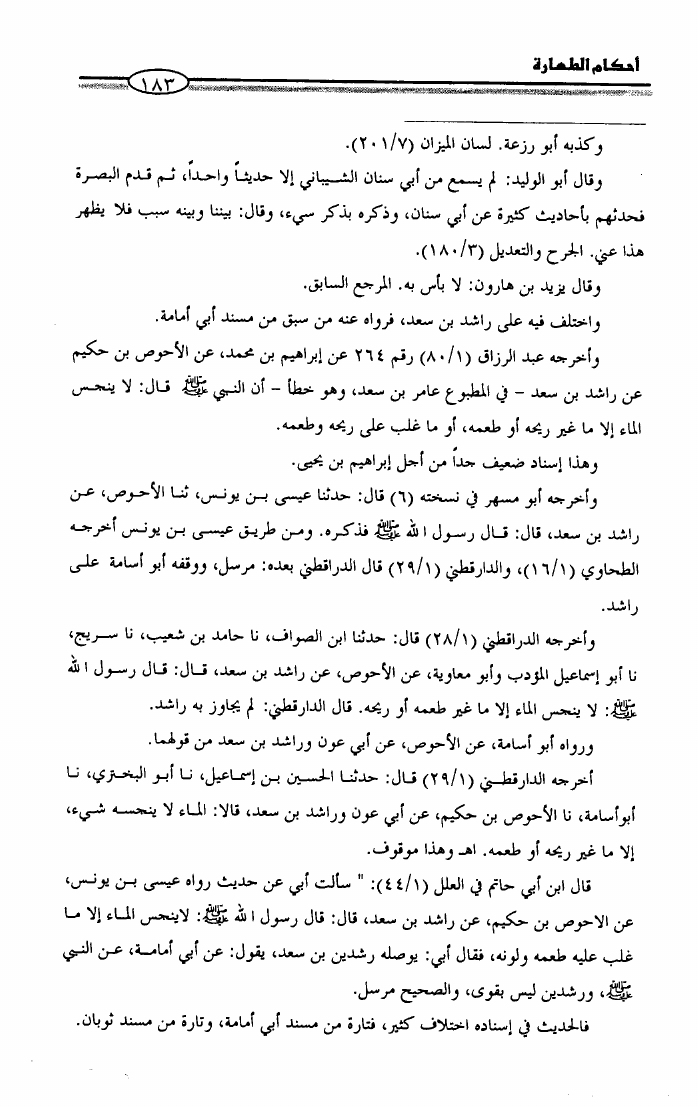 أحكام الطهارة
١٨٣
وكذبه أبو رزعة. لسان الميزان (٢٠١/٧).
وقال أبو الوليد: لم يسمع من أبي سنان الشيباني إلا حديثاً واحداً، ثم قدم البصرة
فحدثهم بأحاديث كثيرة عن أبي سنان، وذكره بذكر سيء، وقال: بيننا وبينه سبب فلا يظهر
هذا عني. الجرح والتعديل (١٨٠/٣).
وقال يزيد بن هارون: لا بأس به. المرجع السابق.
واختلف فيه على راشد بن سعد، فرواه عنه من سبق من مسند أبي أمامة.
وأخرجه عبد الرزاق (٨٠/١) رقم ٢٦٤ عن إبراهيم بن محمد، عن الأحوص بن حكيم
عن راشد بن سعد - في المطبوع عامر بن سعد، وهو خطأ - أن النبي ﷺ قال: لا ينجس
الماء إلا ما غير ريحه أو طعمه، أو ما غلب على ريحه وطعمه.
وهذا إسناد ضعيف جداً من أجل إبراهيم بن يحيى.
وأخرجه أبو مسهر في نسخته (٦) قال: حدثنا عيسى بن يونس، ثنا الأحوص، عن
راشد بن سعد، قال: قال رسول الله ﷺ فذكره. ومن طريق عيسى بن يونس أخرجه
الطحاوي (١٦/١)، والدارقطني (٢٩/١) قال الدراقطني بعده: مرسل، ووقفه أبو أسامة على
راشد.
وأخرجه الدراقطني (٢٨/١) قال: حدثنا ابن الصواف، نا حامد بن شعيب، نا سريج،
نا أبو إسماعيل المؤدب وأبو معاوية، عن الأحوص، عن راشد بن سعد، قال: قال رسول الله
ﷺ: لا ينجس الماء إلا ما غير طعمه أو ريحه. قال الدارقطني: لم يجاوز به راشد.
ورواه أبو أسامة، عن الأحوص، عن أبي عون وراشد بن سعد من قولهما.
أخرجه الدارقطني (٢٩/١) قال: حدثنا الحسين بن إسماعيل، نا أبو البختري، نا
أبوأسامة، نا الأحوص بن حكيم، عن أبي عون وراشد بن سعد، قالا: الماء لا ينجسه شيء،
إلا ما غير ريحه أو طعمه. اهـ وهذا موقوف.
قال ابن أبي حاتم في العلل (٤٤/١): " سألت أبي عن حديث رواه عيسى بن يونس،
عن الاحوص بن حكيم، عن راشد بن سعد، قال: قال رسول الله ﷺ: لاينجس الماء إلا ما
غلب عليه طعمه ولونه، فقال أبي: يوصله رشدين بن سعد، يقول: عن أبي أمامة، عن النبي
ﷺ، ورشدين ليس بقوى، والصحيح مرسل.
فالحديث في إسناده اختلاف كثير، فتارة من مسند أبي أمامة، وتارة من مسند ثوبان.